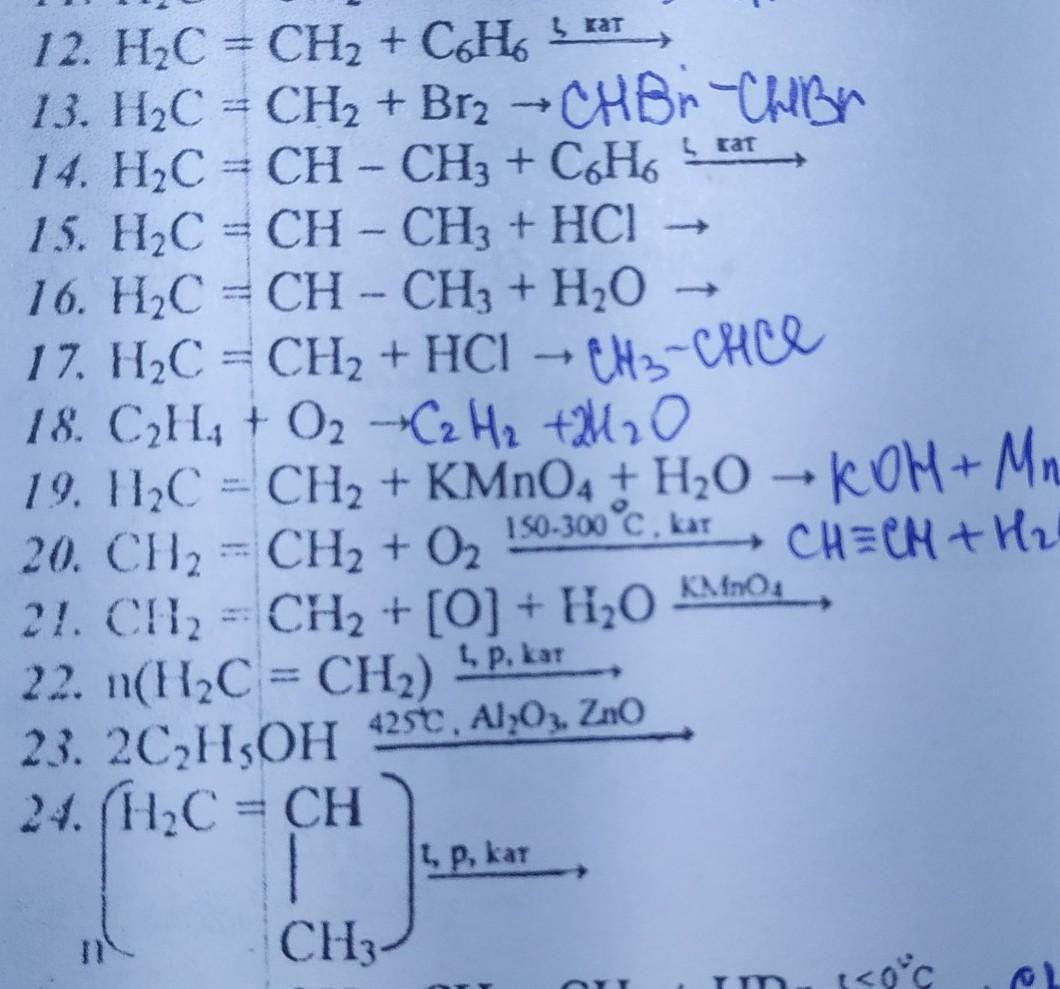 12. H₂C = CH₂ + C₆H₆ t, кат →
13. H₂C = CH₂ + Br₂ → CHBr - CHBr
14. H₂C = CH – CH₃ + C₆H₆ t, кат →
15. H₂C = CH – CH₃ + HCl →
16. H₂C = CH – CH₃ + H₂O →
17. H₂C = CH₂ + HCl → CH₃-CHCl
18. C₂H₄ + O₂ → C₂H₂ + 2H₂O
19. H₂C = CH₂ + KMnO₄ + H₂O → KOH + Mn
20. CH₂ = CH₂ + O₂ 150-300°C, кат → CH≡CH + H₂
21. CH₂ = CH₂ + [O] + H₂O KMnO₄ →
22. n(H₂C = CH₂) t, p, кат →
23. 2C₂H₅OH 425°C, Al₂O₃, ZnO →
24. (H₂C = CH
|
CH₃)
n
t, p, кат →
t<0°C